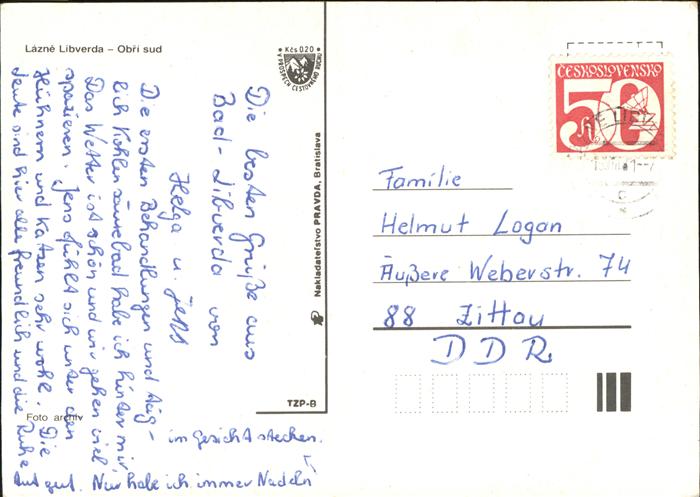 Lázně Libverda – Obří sud
Kčs 0,20
V PROSPĚCH CESTOVNÍHO RUCHU
Die besten Grüße aus
Bad-Libverda von
Helga u. Jens
Die ersten Behandlungen und täg-
lich Kohlensäurebad habe ich hinter mir.
Das Wetter ist schön und wir gehen viel
spazieren. Jens fühlt sich unter den
Hühnern und Katzen sehr wohl. Die
Leute sind hier alle freundlich und die Ruhe
tut gut. Nur habe ich immer Nadeln
im Gesicht stecken.
Foto archív
Nakladateľstvo PRAVDA, Bratislava
TZP-B
ČESKOSLOVENSKO
50
h
Familie
Helmut Logan
Äußere Weberstr. 74
88 Zittau
DDR